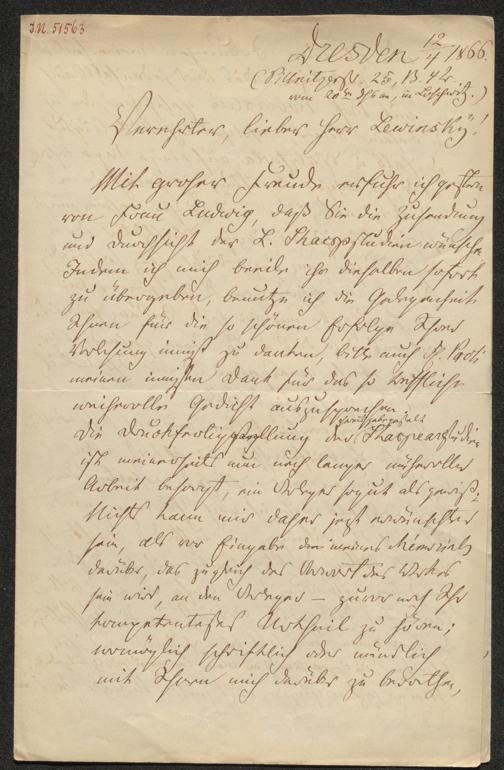 J.N. 51563
Dresden 12/4 1866.
(Pillnitzerstr. 25, III. 4 Tr.
vom 20ten dss an, in Loschwitz.)
Verehrter, lieber Herr Lewinsky!
Mit großer Freude erfuhr ich gestern
von Frau Ludwig, daß Sie die Zusendung
und Durchsicht der L. Shacspstudien wünschen
Indem ich mich beeile Ihnen dieselben sofort
zu übergeben, benutze ich die Gelegenheit
Ihnen für die so schönen Erfolge Ihrer
Vorlesung innigst zu danken, bitte auch Paoli
meinen innigsten Dank für das so treffliche
weihevolle Gedicht auszusprechen.
Die Druckfertigstellung der Shacspearstudien
ist meinerseits nun nach langer mühevoller
Arbeit besorgt, ein Verleger so gut als gewiß;
Nichts kann mir daher jetzt erwünschter
sein, als vor Eingabe meines Memorials
darüber, das zugleich das Vorwort des Werkes
sein wird, an den Verleger – zuvor noch Ihr
kompetentestes Urtheil zu hören;
womöglich schriftlich oder mündlich
mit Ihnen mich darüber zu berathen,